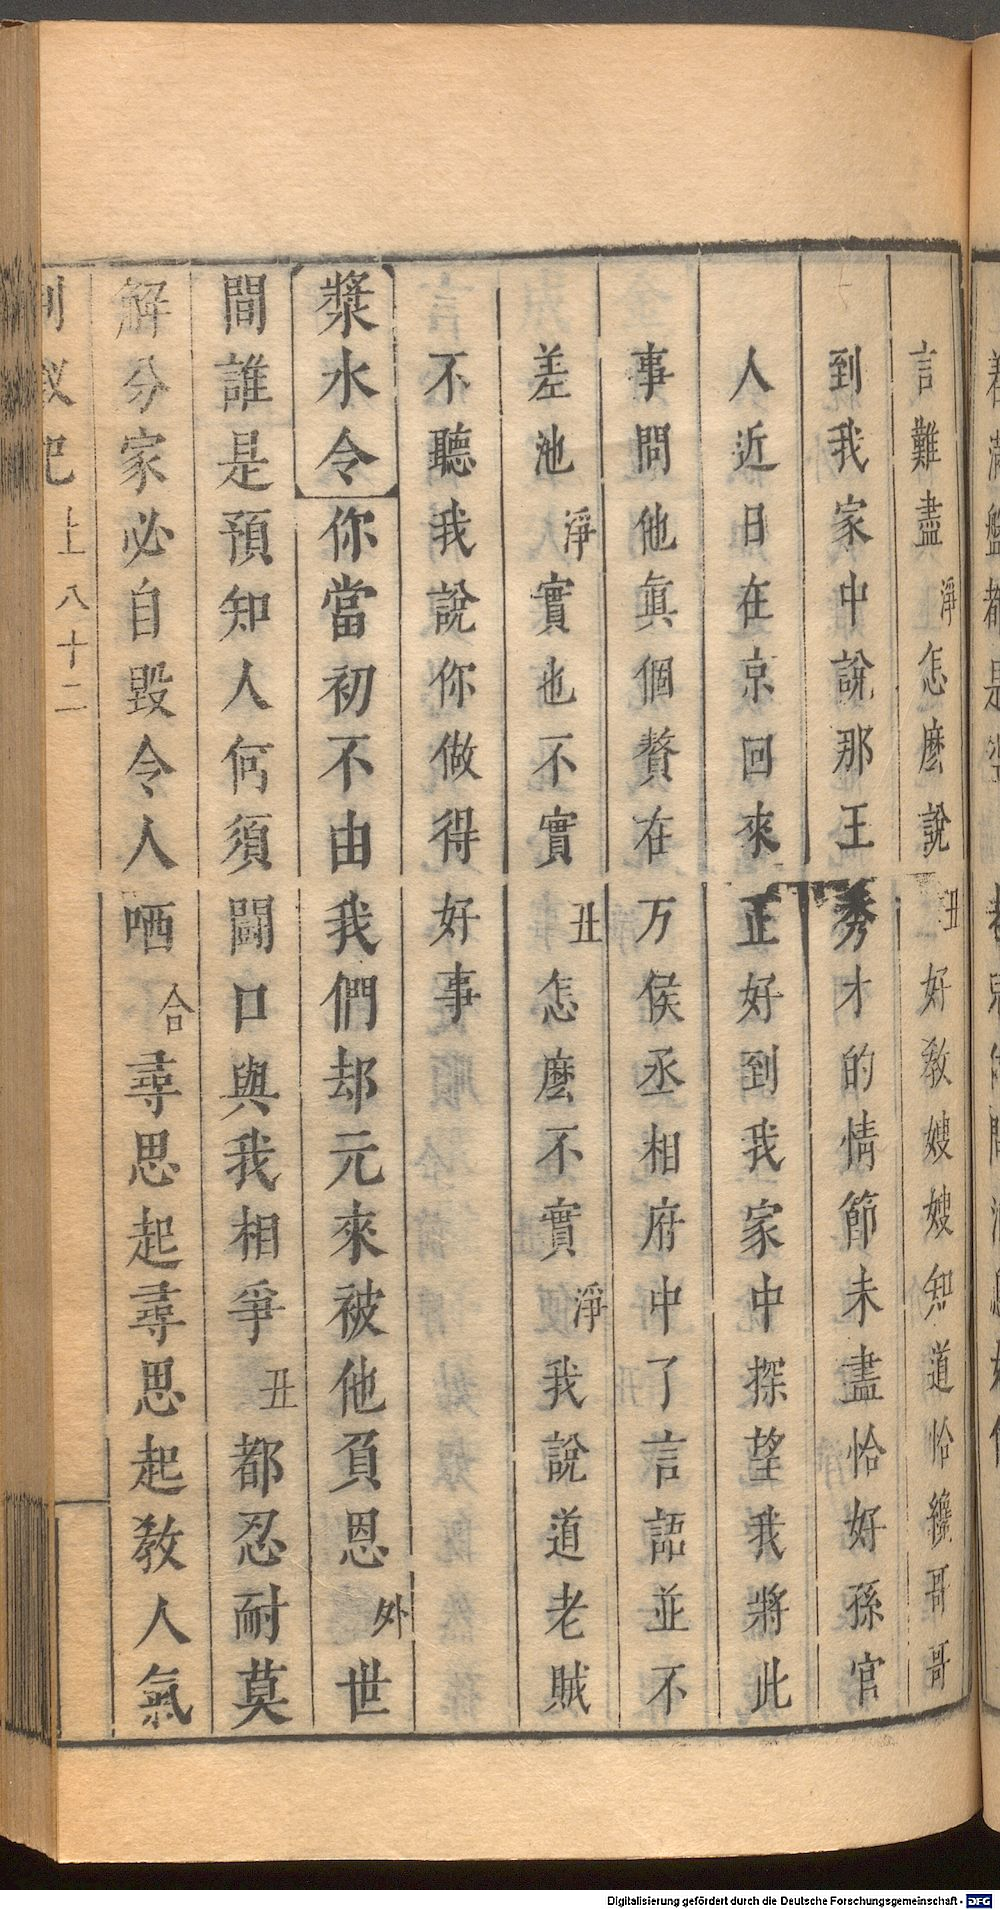 言難盡淨怎麽說丑好教嫂嫂知道恰纔哥哥
到我家中說那王秀才的情節未盡恰好孫官
人近日在京回來正好到我家中探望我將此
事問他眞個贅在万俟丞相府中了言語並不
差池淨實也不實丑怎麽不實淨我說道老賊
不聽我說你做得好事
漿水令你當初不由我們却元來被他負恩外世
間誰是預知人何須鬪口與我相爭丑都忍耐莫
解分家必自毀令人哂合尋思起尋思起教人氣
上 八十二
Digitalisierung gefördert durch die Deutsche Forschungsgemeinschaft - DFG